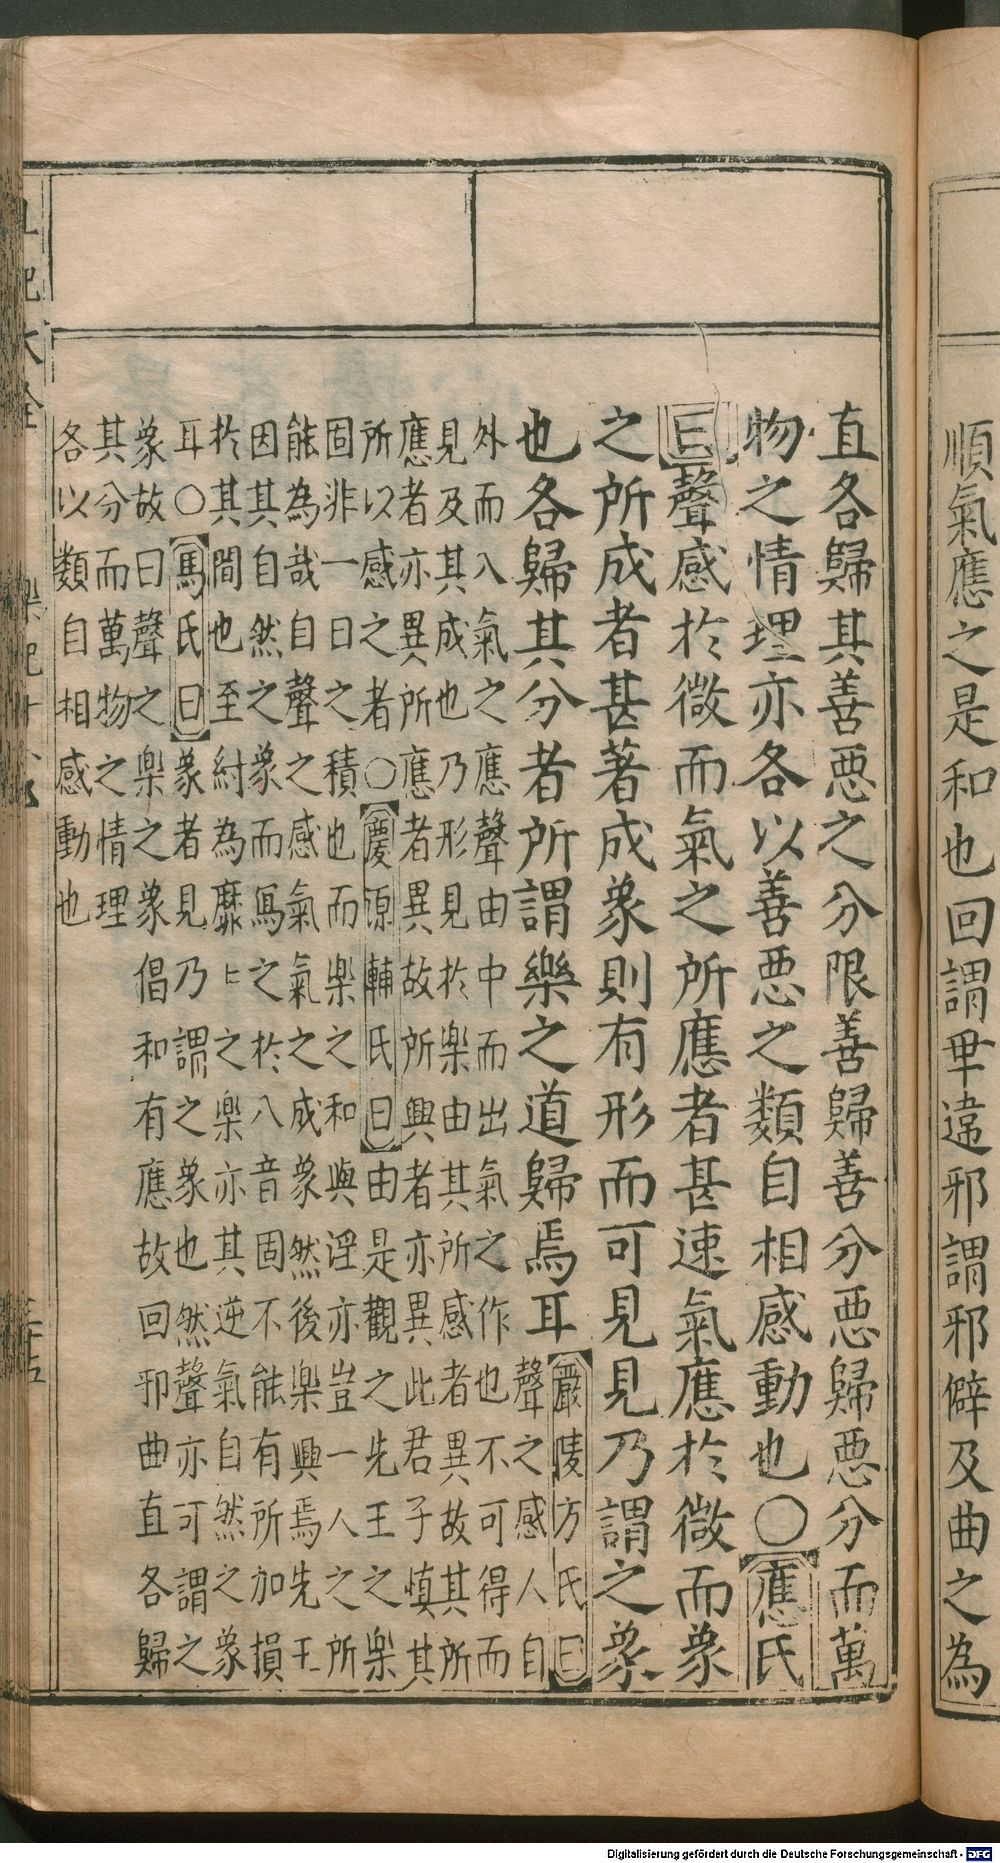 順氣應之是和也回謂乖違邪謂邪僻及曲之為
直各歸其善悪之分限善歸善分悪歸悪分而萬
物之情理亦各以善悪之類自相感動也○應氏
曰聲感於微而氣之所應者甚速氣應於微而象
之所成者甚著成象則有形而可見見乃謂之象
也各歸其分者所謂樂之道歸焉耳
嚴陵方氏曰
聲之感人自
外而入氣之應聲由中而出氣之作也不可得而
見及其成也乃形見於楽由其所感者異故其所
應者亦異所應者異故所興者亦異此君子慎其
所以感之者○慶源輔氏曰由是觀之先王之楽
固非一日之積也而楽之和與淫亦豈一人之所
能為哉自聲之感氣氣之成象然後楽興焉先王
因其自然之象而寫之於八音固不能有所加損
於其間也至紂為靡〻之樂亦其逆氣自然之象
耳○馬氏曰象者見乃謂之象也然聲亦可謂之
象故曰聲之楽之象倡和有應故回邪曲直各歸
其分而萬物之情理
各以類自相感動也
Digitalisierung gefördert durch die Deutsche Forschungsgemeinschaft - DFG